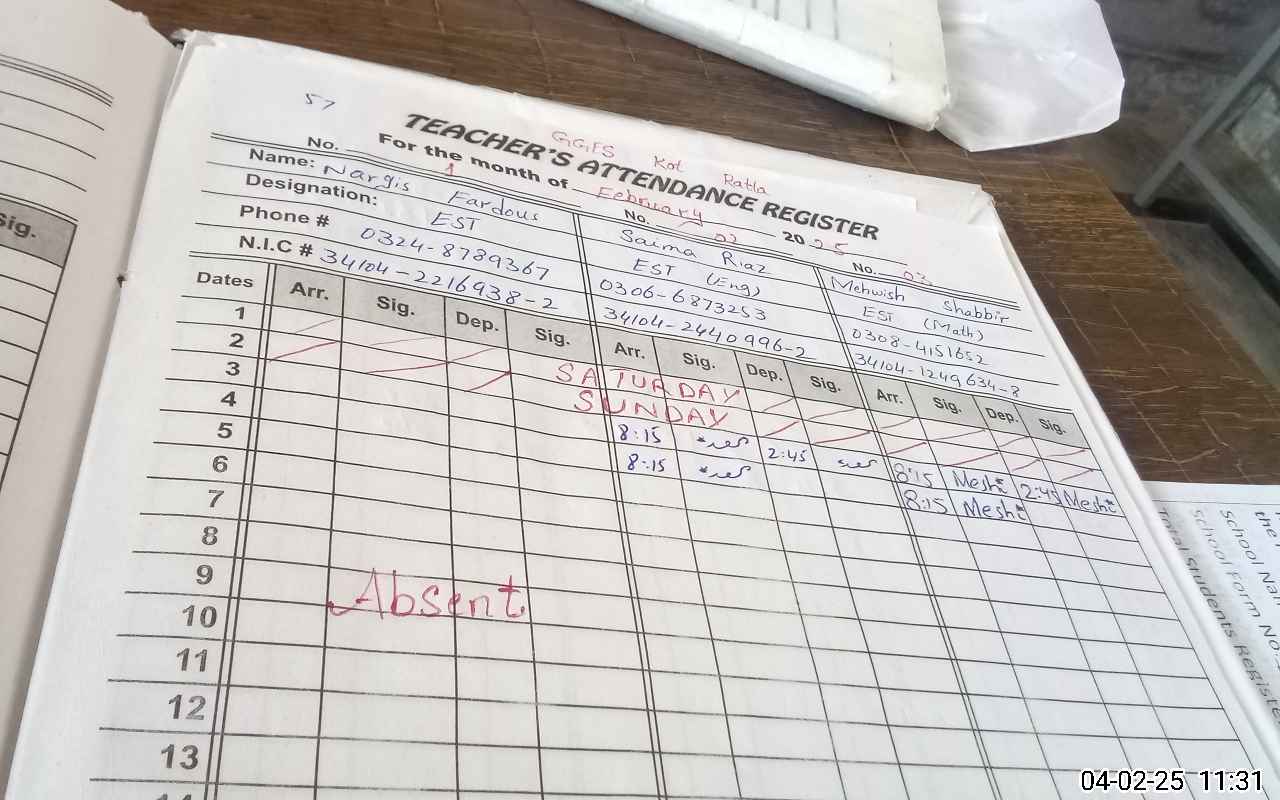 57
GGES Kot Ratla
TEACHER'S ATTENDANCE REGISTER
For the month of February 2025
No. 1 No. 02 No. 03
Name: Nargis Fardous Saima Riaz Mehwish Shabbir
Designation: EST EST (Eng) EST (Math)
Phone # 0324-8789367 0306-6873253 0308-4151652
N.I.C # 34104-2216938-2 34104-2440996-2 34104-1249634-8
Dates Arr. Sig. Dep. Sig. Arr. Sig. Dep. Sig. Arr. Sig. Dep. Sig.
1 SATURDAY
2 SUNDAY
3 8:15 2:45 8:15 Mesht 2:45 Mesht
4 8:15 8:15 Mesht
5
6
7
8
9
Absent
10
11
12
13
14
Sig.
the
School Nam
School Form No.
Total Students Registe
04-02-25 11:31